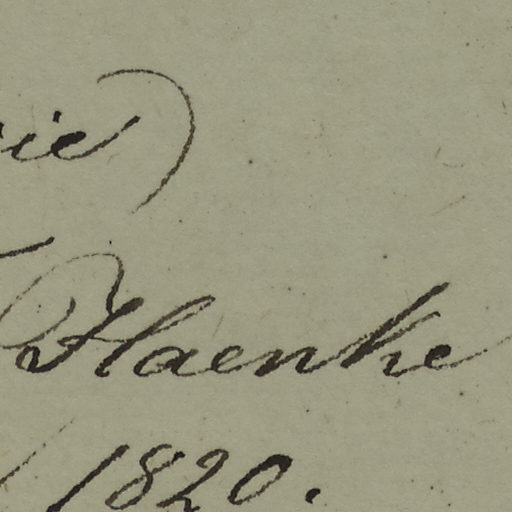 ie)
Haenke
1820.